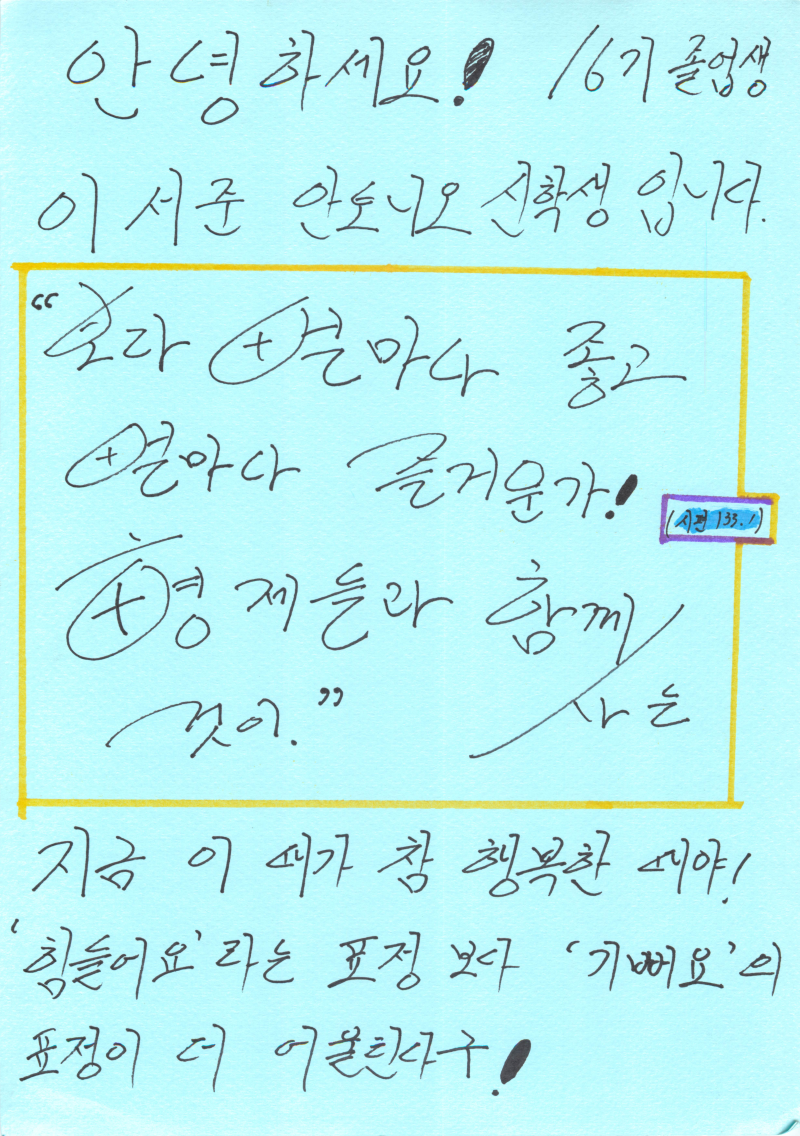 안녕하세요! 16기 졸업생
이서준 안토니오 신학생 입니다.
"보라 얼마나 좋고
얼마나 즐거운가!
(시편 133.1)
형제들과 함께
사는
것이."
지금 이 때가 참 행복한 때야!
'힘들어요'라는 표정 보다 '기뻐요'의
표정이 더 어울린다구!